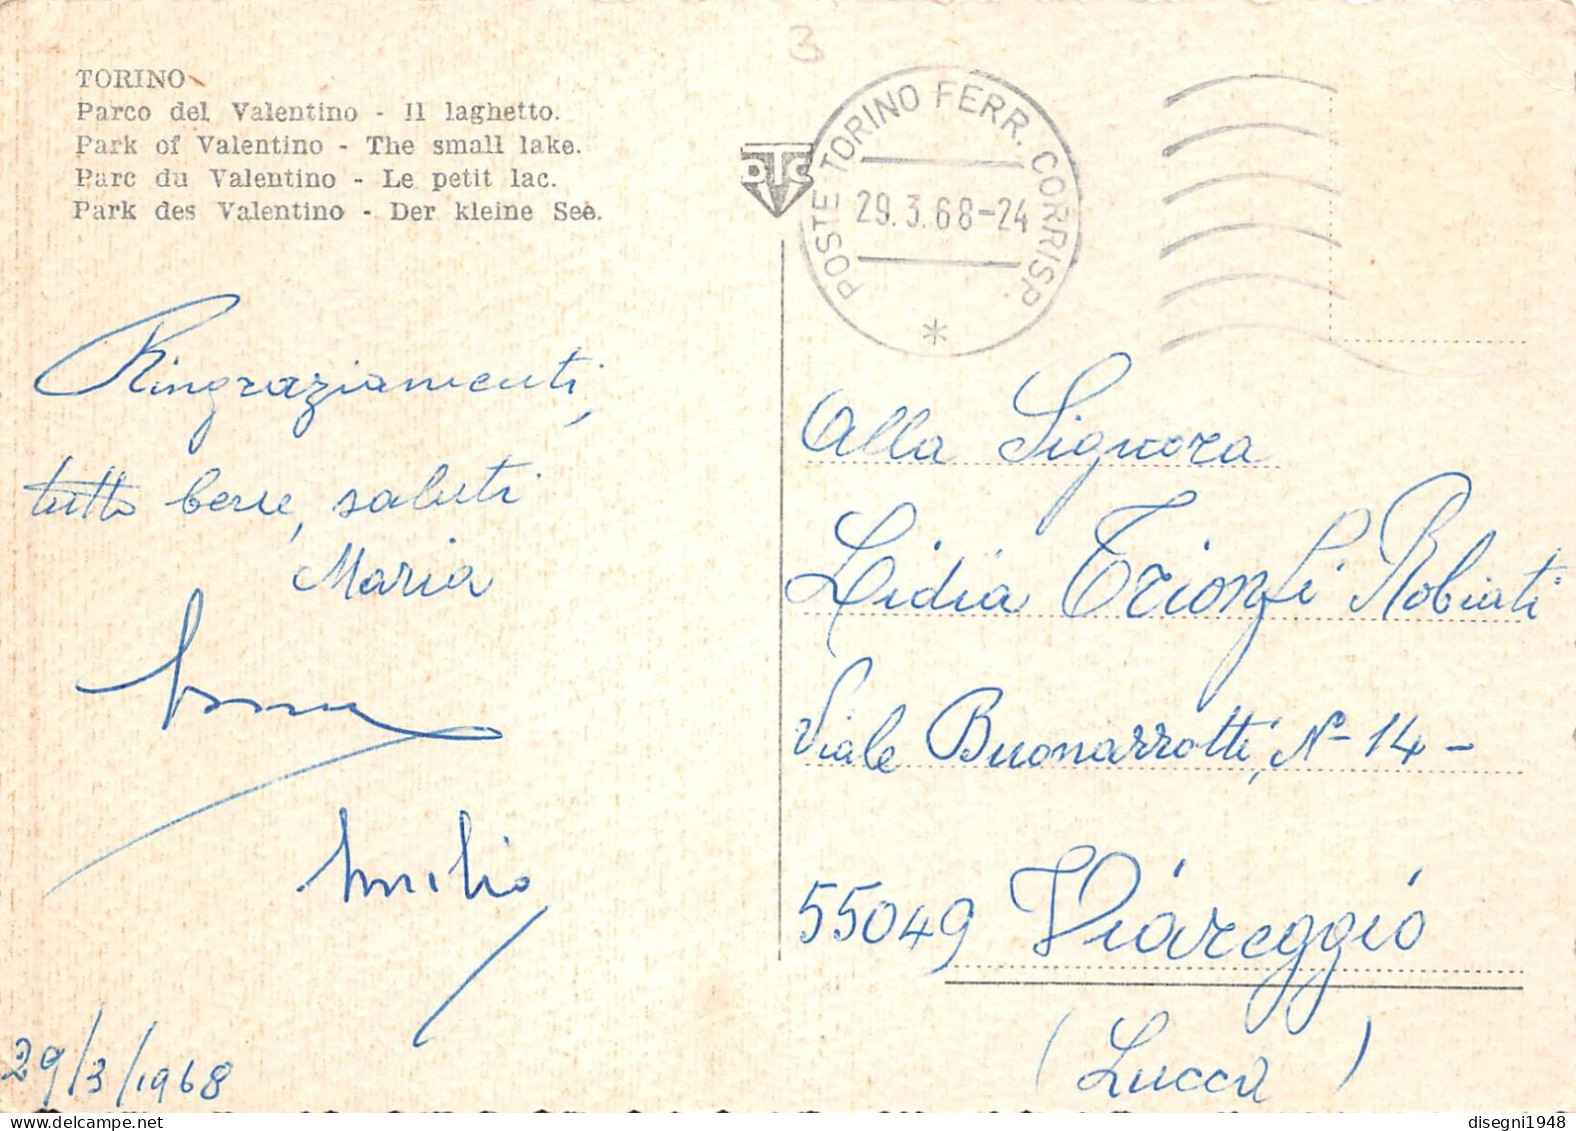 3
TORINO
Parco del Valentino - Il laghetto.
Park of Valentino - The small lake.
Parc du Valentino - Le petit lac.
Park des Valentino - Der kleine See.
DTC
POSTE TORINO FERR. CORRISP.
29.3.68-24
*
Ringraziamenti,
tutto bene, saluti
Maria
Emilio
29/3/1968
Alla Signora
Lidia Trionfi Robiati
Viale Buonarrotti, N° 14 -
55049 Viareggio
(Lucca)
disegni1948